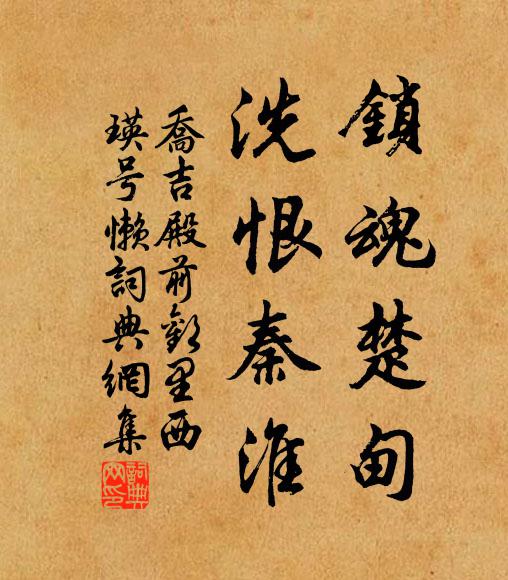 鎖魂楚甸
洗恨秦淮
喬吉殿前歡里西
瑛号懒詞典網集
詞典网印